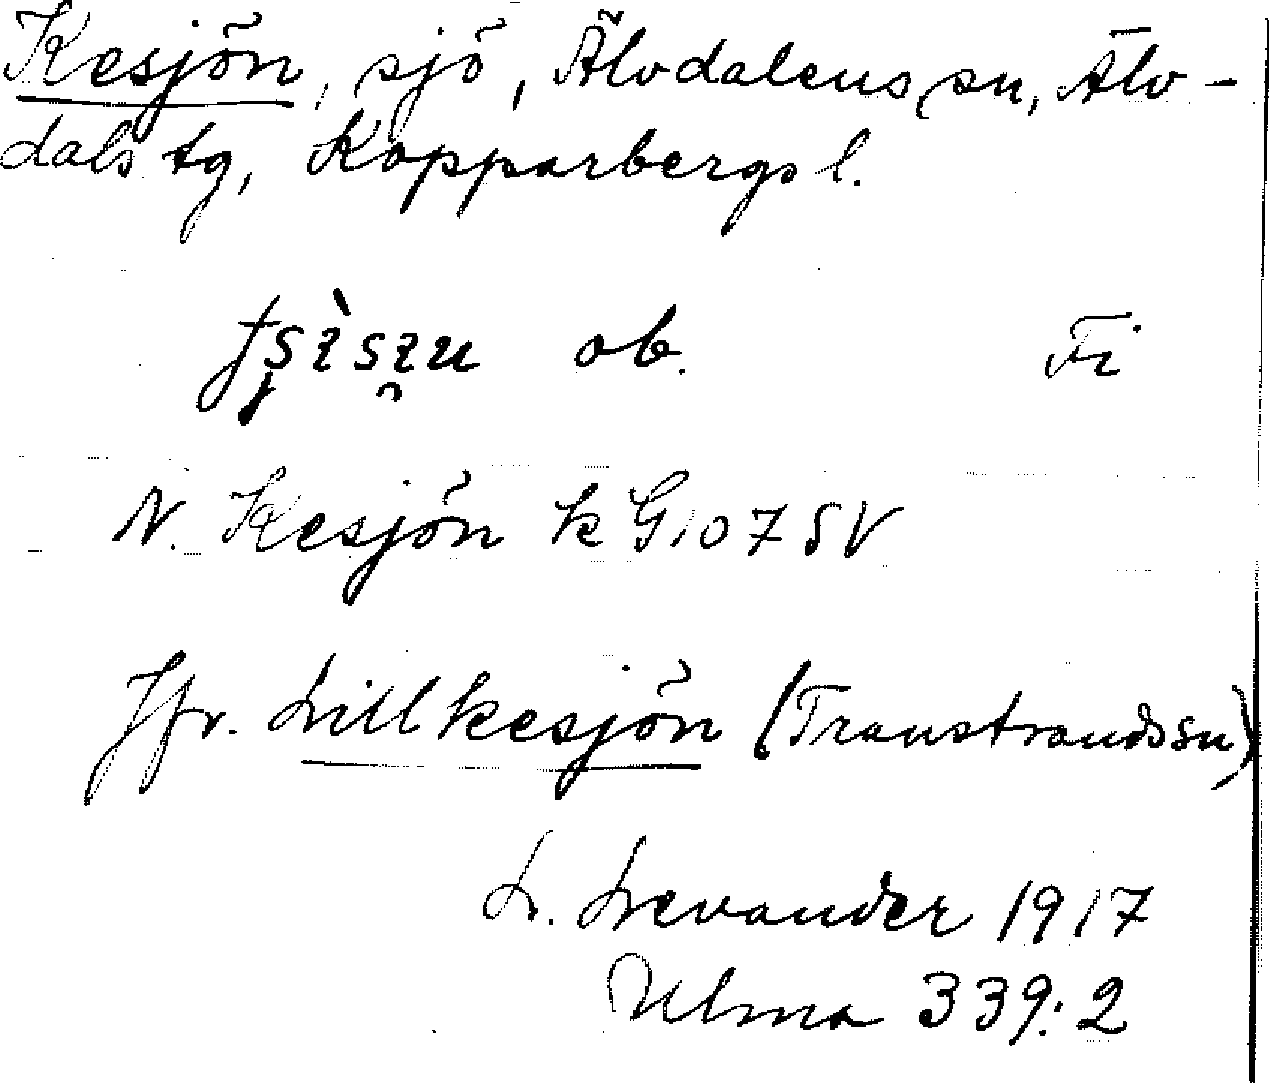 Kesjön, sjö, Älvdalens sn, Älv-
dals tg, Kopparbergs l.
ob. Fi
N. Kesjön k G107 SV
Jfr. Lillkesjön (Transtrands sn)
L. Levander 1917
Ulma 339:2